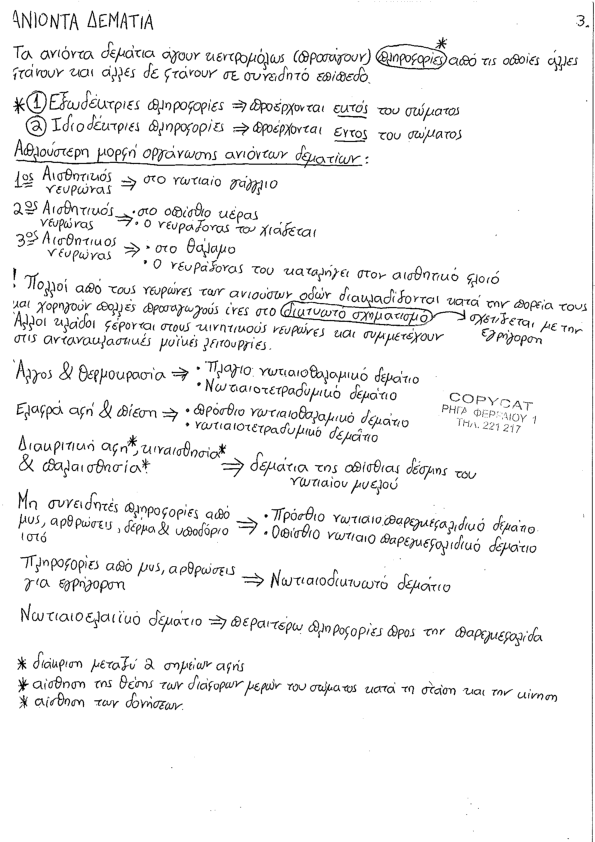 ΑΝΙΟΝΤΑ ΔΕΜΑΤΙΑ
3.
Τα ανιόντα δεμάτια άγουν κεντρομόλως (προσάγουν) πληροφορίες* από τις οποίες άλλες
φτάνουν και άλλες δε φτάνουν σε συνειδητό επίπεδο.
* 1 Εξωδέκτριες πληροφορίες ⇒ προέρχονται εκτός του σώματος
2 Ιδιοδέκτριες πληροφορίες ⇒ προέρχονται εντός του σώματος
Απλούστερη μορφή οργάνωσης ανιόντων δεματίων:
1ος Αισθητικός
νευρώνας ⇒ στο νωτιαίο γάγγλιο
2ος Αισθητικός
νευρώνας ⇒ • στο οπίσθιο κέρας
• ο νευράξονας του χιάζεται
3ος Αισθητικος
νευρώνας ⇒ • στο θάλαμο
• Ο νευράξονας του καταλήγει στον αισθητικό φλοιό
! Πολλοί από τους νευρώνες των ανιουσών οδών διακλαδίζονται κατά την πορεία τους
και χορηγούν πολλές προσαγωγούς ίνες στο δικτυωτό σχηματισμό → σχετίζεται με την
εγρήγορση
Άλλοι κλάδοι φέρονται στους κινητικούς νευρώνες και συμμετέχουν
στις αντανακλαστικές μυϊκές λειτουργίες.
Άλγος & θερμοκρασία ⇒ • Πλάγιο νωτιαιοθαλαμικό δεμάτιο
• Νωτιαιοτετραδυμικό δεμάτιο
COPYCAT
ΡΗΓΑ ΦΕΡΑΙΟΥ 1
ΤΗΛ. 221 217
Ελαφρά αφή & πίεση ⇒ • πρόσθιο νωτιαιοθαλαμικό δεμάτιο
• νωτιαιοτετραδυμικό δεμάτιο
Διακριτική αφή*, κιναισθησία*
& παλαισθησία* ⇒ δεμάτια της οπίσθιας δέσμης του
νωτιαίου μυελού
Μη συνειδητές πληροφορίες από
μυς, αρθρώσεις, δέρμα & υποδόριο
ιστό
⇒ • Πρόσθιο νωτιαιοπαρεγκεφαλιδικό δεμάτιο
• Οπίσθιο νωτιαιοπαρεγκεφαλιδικό δεμάτιο
Πληροφορίες από μυς, αρθρώσεις
για εγρήγορση ⇒ Νωτιαιοδικτυωτό δεμάτιο
Νωτιαιοελαιϊκό δεμάτιο ⇒ περαιτέρω πληροφορίες προς την παρεγκεφαλίδα
* διάκριση μεταξύ 2 σημείων αφής
* αίσθηση της θέσης των διάφορων μερών του σώματος κατά τη στάση και την κίνηση
* αίσθηση των δονήσεων.